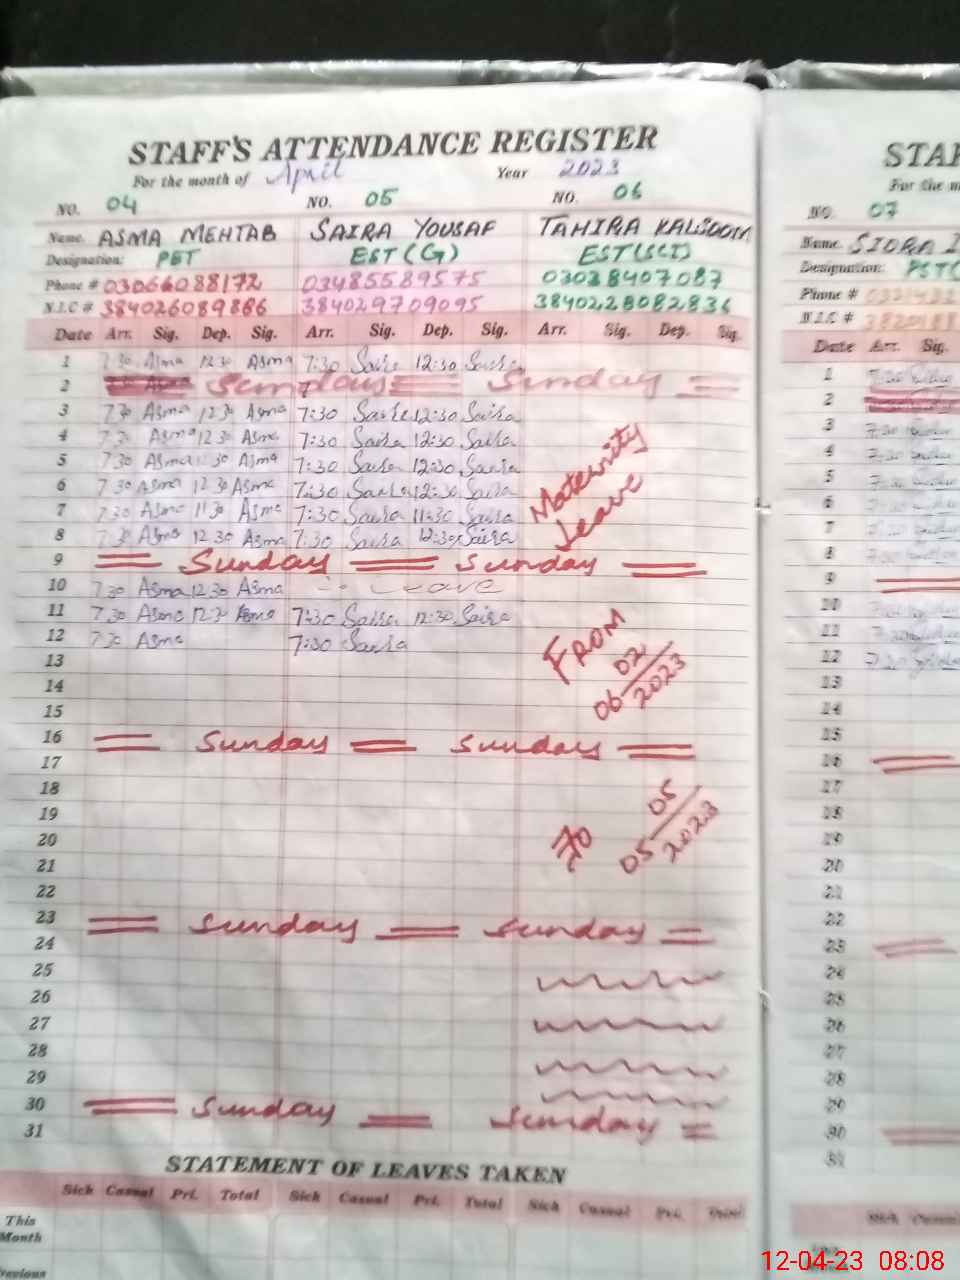 STAFF'S ATTENDANCE REGISTER
For the month of April Year 2023
NO. 04 NO. 05 NO. 06
Name. ASMA MEHTAB SAIRA YOUSAF TAHIRA KALSOOM
Designation: PET EST (G) EST (SCI)
Phone # 03066088172 03485589575 03038407087
N.I.C # 384026089886 384029709095 3840228082836
Date Arr. Sig. Dep. Sig. Arr. Sig. Dep. Sig. Arr. Sig. Dep. Sig.
1 7:30 Asma 12:30 Asma 7:30 Saira 12:30 Saira
2 Sunday Sunday
3 7:30 Asma 12:30 Asma 7:30 Saira 12:30 Saira
4 7:30 Asma 12:30 Asma 7:30 Saira 12:30 Saira
5 7:30 Asma 12:30 Asma 7:30 Saira 12:30 Saira
6 7:30 Asma 12:30 Asma 7:30 Saira 12:30 Saira
7 7:30 Asma 11:30 Asma 7:30 Saira 11:30 Saira
8 7:30 Asma 12:30 Asma 7:30 Saira 12:30 Saira
Maternity
Leave
9 Sunday Sunday
10 7:30 Asma 12:30 Asma Leave
11 7:30 Asma 12:30 Asma 7:30 Saira 12:30 Saira
12 7:30 Asma 7:30 Saira
FROM
06 02 2023
13
14
15
16 Sunday Sunday
17
18
19
To
05 05 2023
20
21
22
23 Sunday Sunday
24
25
26
27
28
29
30 Sunday Sunday
31
STATEMENT OF LEAVES TAKEN
Sick Casual Pri. Total Sick Casual Pri. Total Sick Casual Pri. Total
This
Month
Previous
STAF
For the m
NO. 07
Name.
Designation: PST
Phone #
N.I.C #
Date Arr. Sig.
1
2
3
4
5
6
7
8
9
10
11
12
13
14
15
16
17
18
19
20
21
22
23
24
25
26
27
28
29
30
31
Sick
12-04-23 08:08